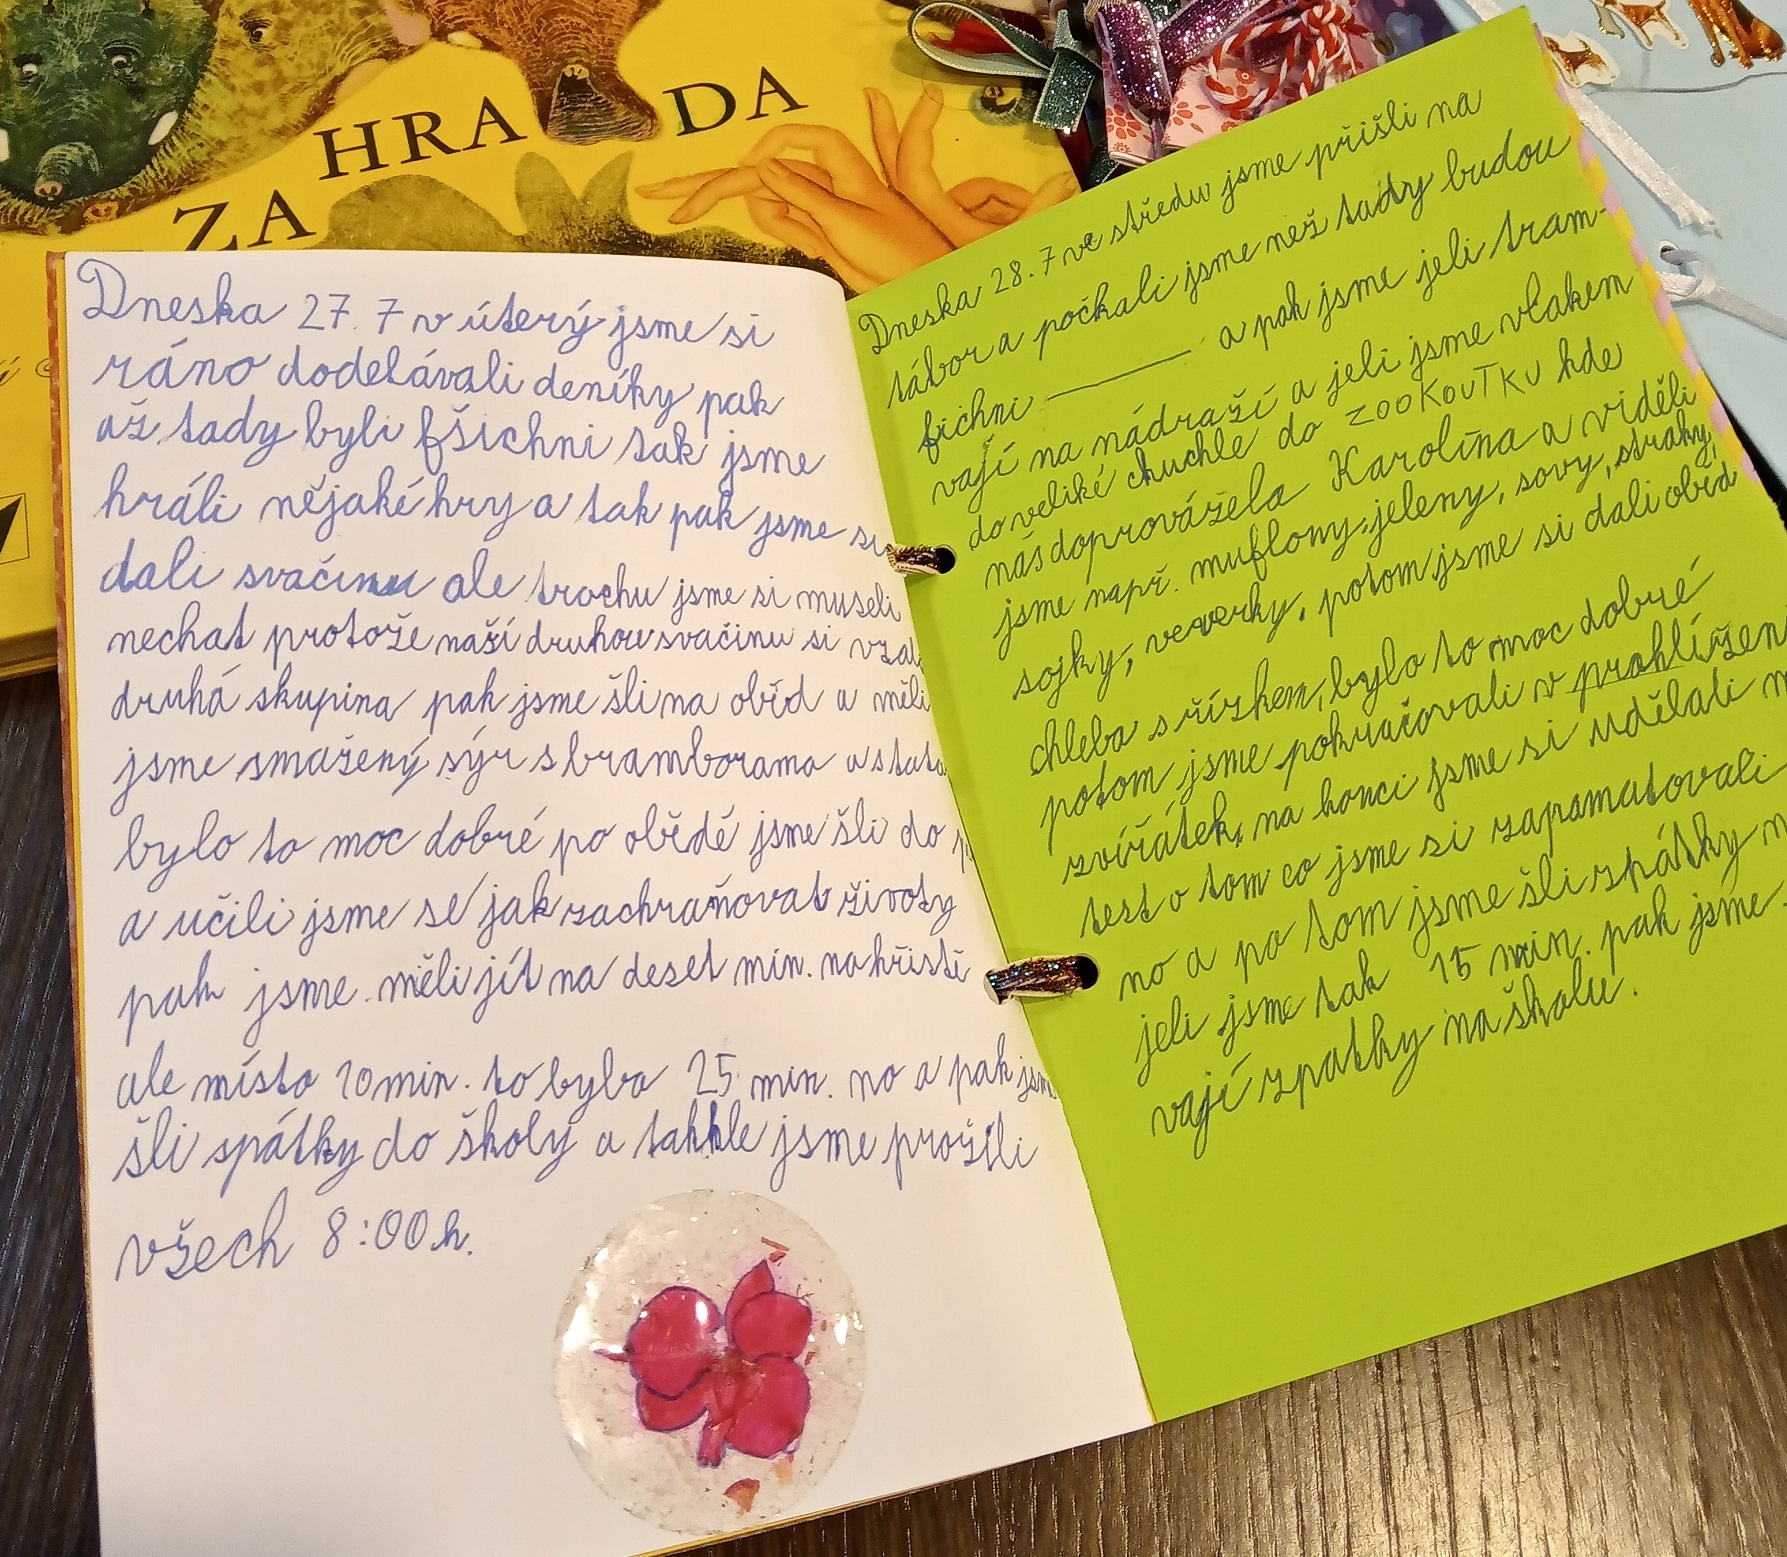 ZAHRADA
Dneska 27. 7 v úterý jsme si
ráno dodelávali deníky pak
až tady byli fšichni tak jsme
hráli nějaké hry a tak pak jsme si
dali svačinu ale trochu jsme si museli
nechat protože naší druhou svačinu si
druhá skupina pak jsme šli na obíd a měli
jsme smažený sýr s bramborama
bylo to moc dobré po obědě jsme šli do
a učili jsme se jak zachraňovat životy
pak jsme měli jít na deset min. na hřistě
ale místo 10 min. to bylo 25 min. no a pak
šli spátky do školy a takhle jsme prožili
všech 8:00 h.
Dneska 28. 7 ve středu jsme přišli na
tábor a počkali jsme než tady budou
fichni a pak jsme jeli tram-
vají na nádraží a jeli jsme vlakem
do veliké chuchle do ZOOKOUTKU kde
nás doprovážela Karolína a viděli
jsme např. muflony, jeleny, sovy, straky,
sojky, veverky, potom jsme si dali obíd
chleba s řízkem, bylo to moc dobré
potom jsme pokračovali v
zvířátek, na konci jsme si udělali
test o tom co jsme si zapamatovali
no a po tom jsme šli zpátky
jeli jsme tak 15 min. pak jsme
vají zpatky na školu.